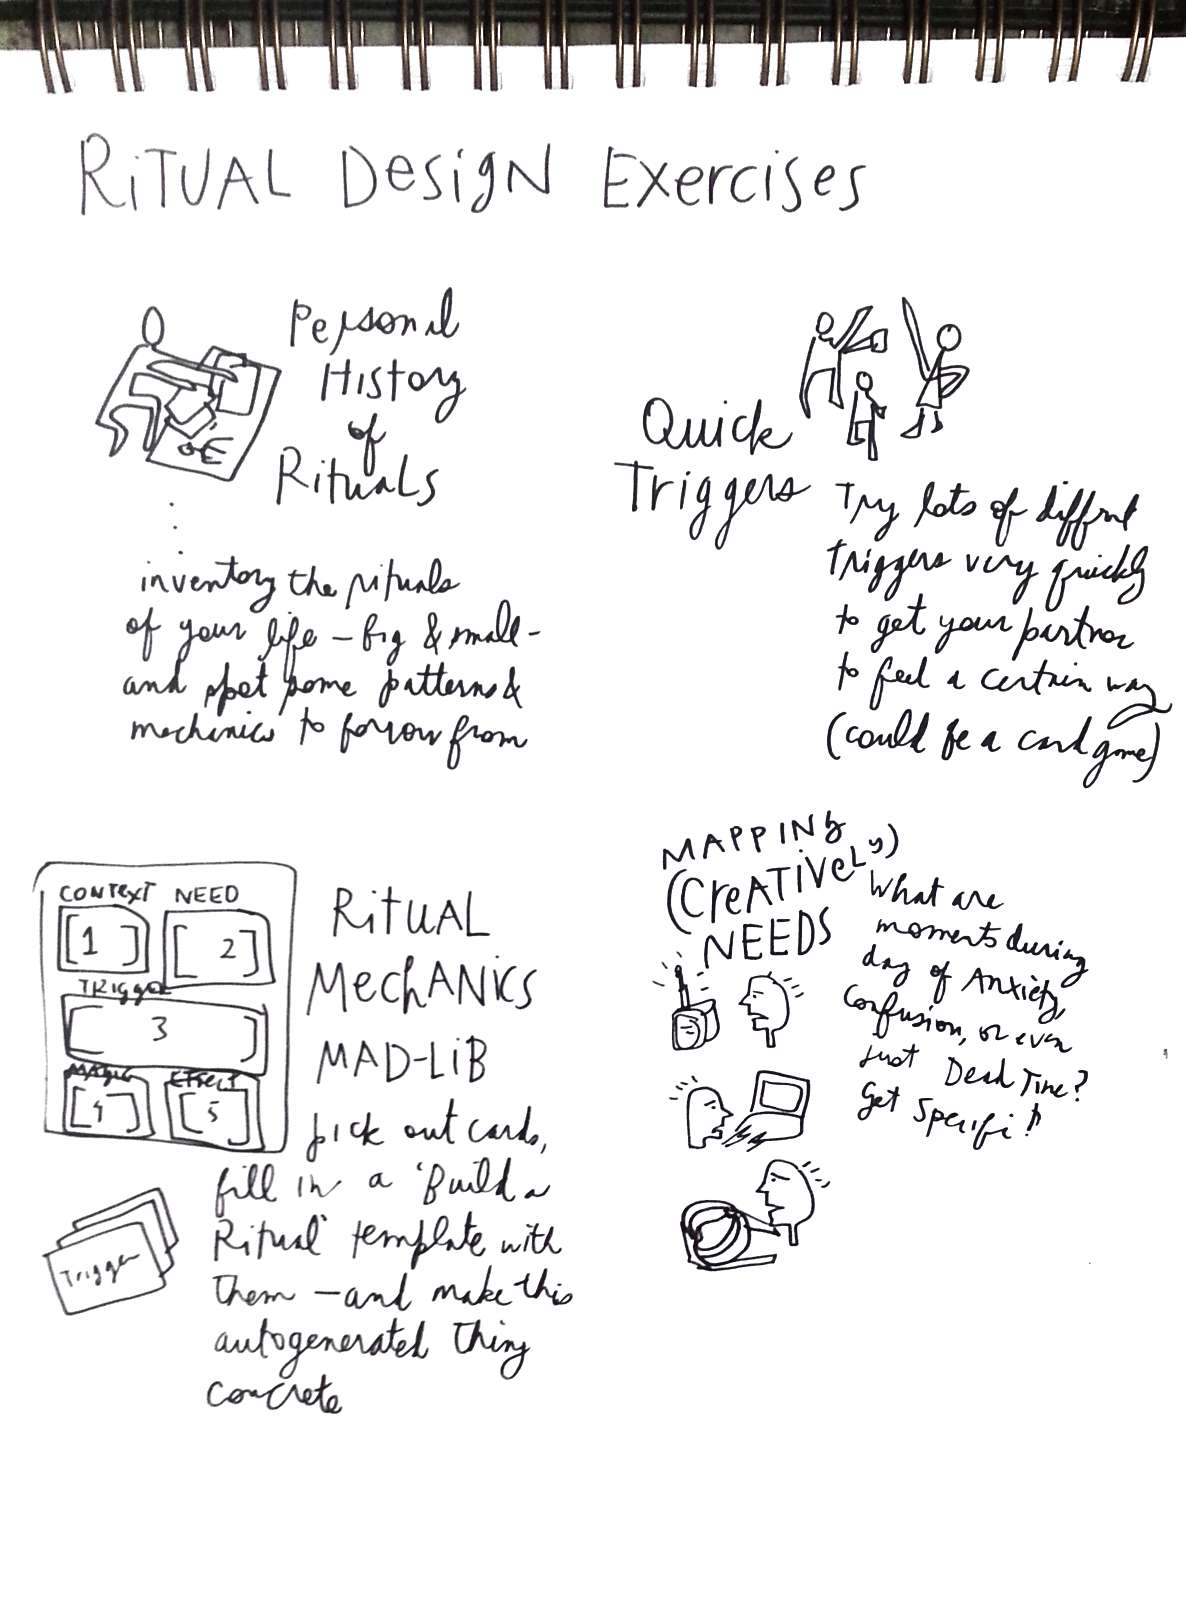 RiTUAL DesigN Exercises
Personal
History
of
Rituals
inventory the rituals
of your life – big & small –
and spot some patterns &
mechanics to borrow from
Quick
Triggers
Try lots of diffrnt
triggers very quickly
to get your partner
to feel a certain way
(could be a card game)
CONTEXT NEED
[1] [2]
TRIGGER
[3]
MAGIC EFFECT
[4] [5]
Trigger
RiTUAL
MechANiCS
MAD-LiB
pick out cards,
fill in a 'Build a
Ritual' template with
them – and make this
autogenerated thing
concrete
MAPPING
(CreATiVeLy)
NEEDS
What are
moments during
day of Anxiety,
Confusion, or even
Just Dead Time?
Get Specific!!